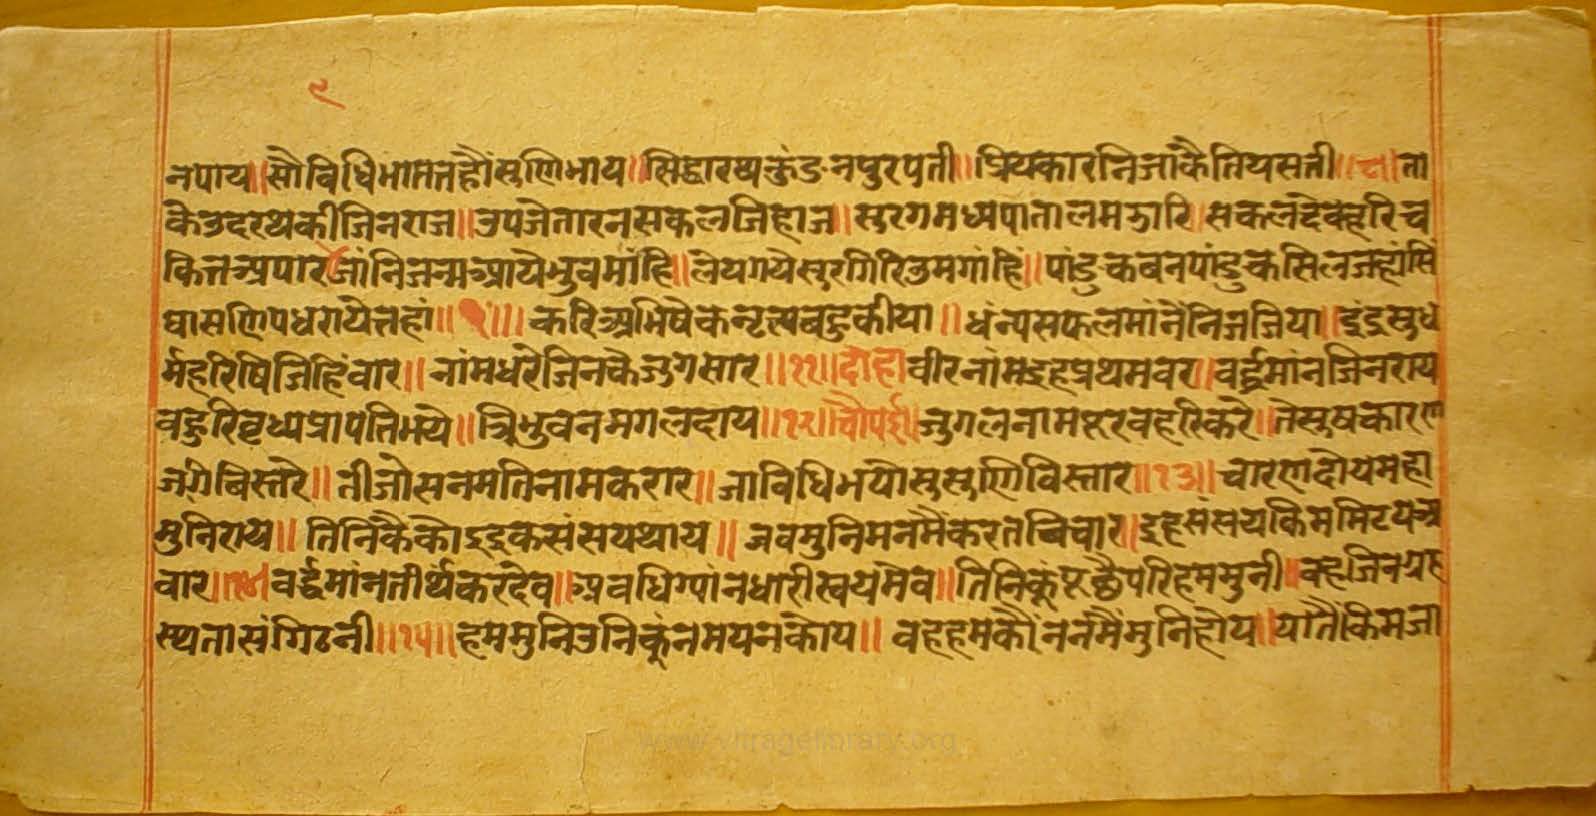 ९
नपाय॥सौविधिभासतहौंसुणिभाय॥सिद्धारथकुंडनपुरपती॥प्रियकारनिजाकैतियसती॥८॥ता
केउदरथकीजिनराज॥उपजेतारनसकलजिहाज॥सुरगमध्यपातालमझारि॥सकलदेवहरिच
कितअपार॥जांनिजन्मआयेभुवमांहि॥लेयगयेसुरगिरिउमगांहिं॥पांडुकबनपांडुकसिलजहांसिं
घासणिपधरायेतहां॥१॥करिअभिषेकनृत्यबहुकीया॥धंन्यसफलमांनैनिजजिया॥इंद्रसुध
र्महरिषिजिहिंवार॥नांमधरेजिनकैजुगसार॥११॥दोहा॥वीरनांमइहप्रथमवर॥वर्द्धमांनजिनराय
बहुरिवृध्यप्रापतिभये॥त्रिभुवनमगलदाय॥१२॥चौपई॥जुगलनामएहरवहरिकरे॥तेसुषकारण
जगिबिस्तरे॥तीजोसनमतिनामकरार॥जाविधिभयोसुसुणिविस्तार॥१३॥चारणदोयमहा
मुनिराय॥तिनिकैकोइइकसंसयथाय॥जबमुनिमनमैंकरतबिचार॥इहसंसयकिममिटयेअ
वार॥१४॥वर्द्धमांनतीर्थकरदेव॥अवधिग्यांनधारीस्वयमेव॥तिनिकूंपूछैपरिहममुनी॥वहजिनग्रह
स्थतासंगिठनी॥१५॥हममुनिउनिकूंनमयनकोय॥वहहमकौंननमैंमुनिहोय॥यातैंकिमजा
www.vitragelibrary.org